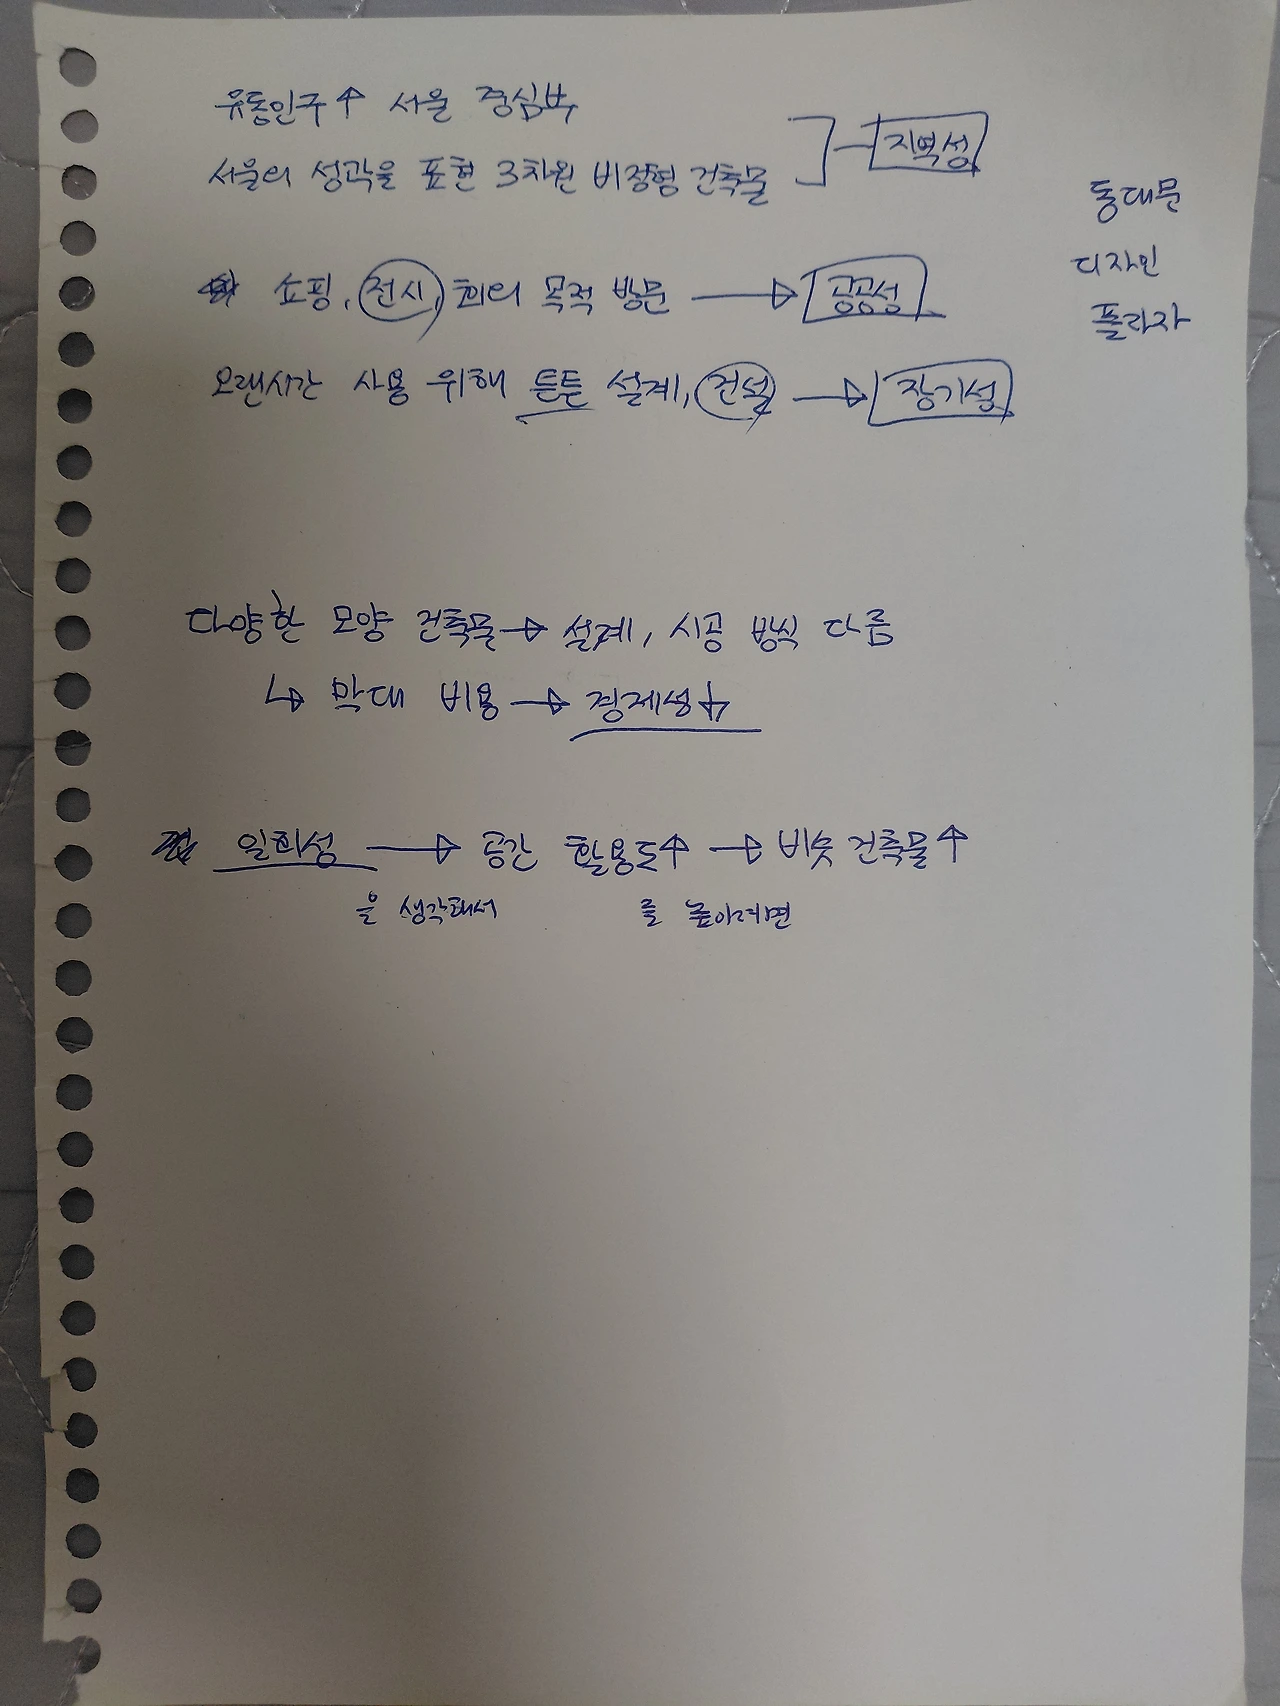 유동인구↑ 서울 중심부
서울의 성곽을 표현 3차원 비정형 건축물
지역성
동대문
디자인
플라자
쇼핑, 전시, 회의 목적 방문 → 공공성
오랜시간 사용 위해 튼튼 설계, 건설 → 장기성
다양한 모양 건축물 → 설계, 시공 방식 다름
↳ 막대 비용 → 경제성↓
일회성 → 공간 활용도↑ → 비슷 건축물↑
을 생각해서 를 높이려면